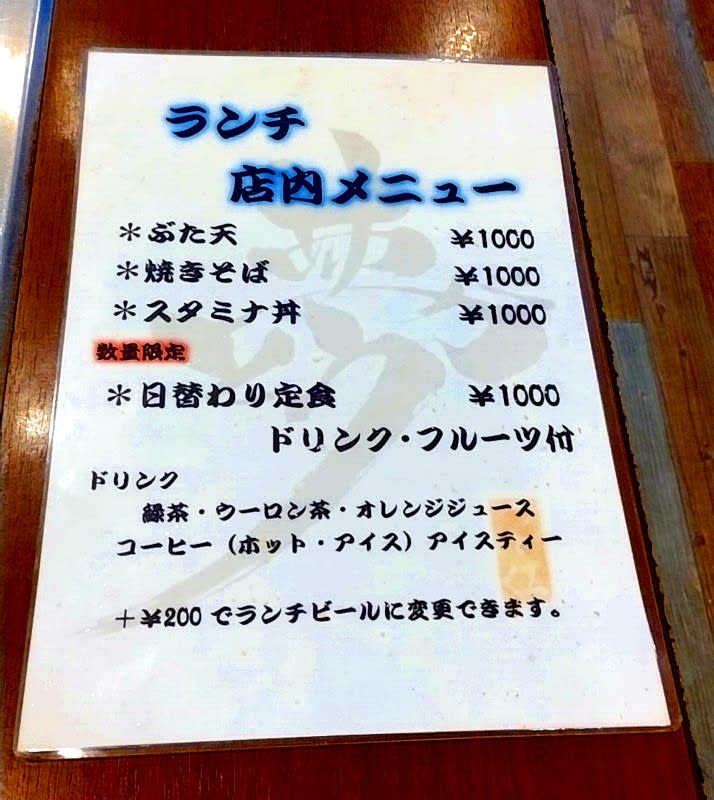 ランチ
店内メニュー
＊ぶた天 ¥1000
＊焼きそば ¥1000
＊スタミナ丼 ¥1000
数量限定
＊日替わり定食 ¥1000
ドリンク・フルーツ付
ドリンク
緑茶・ウーロン茶・オレンジジュース
コーヒー（ホット・アイス）アイスティー
＋¥200 でランチビールに変更できます。
夢